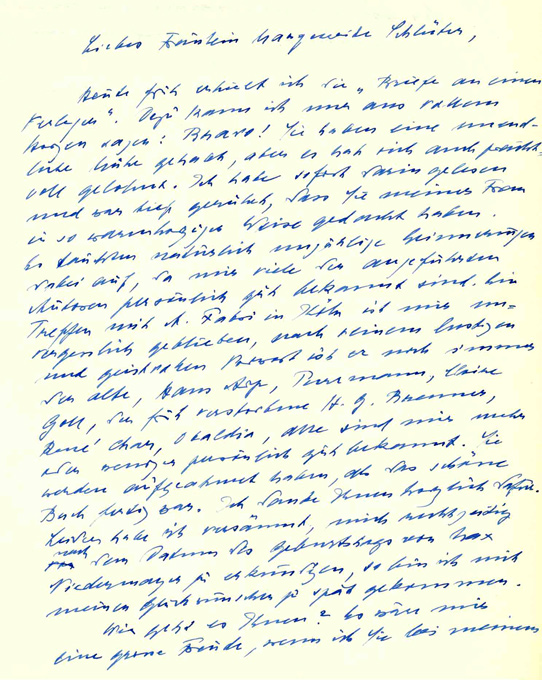 Liebes Fräulein Marguerite Schlüter,
Heute früh erhielt ich die „Briefe an einen
Verleger". Dazu kann ich nur aus vollem
Herzen sagen: Bravo! Sie haben eine unend-
liche Mühe gehabt, aber es hat sich auch
voll gelohnt. Ich habe sofort darin gelesen
und war tief gerührt, dass Sie meiner Frau
in so warmherziger Weise gedacht haben.
Es tauchten natürlich unzählige Erinnerungen
dabei auf, da mir viele der angeführten
Autoren persönlich gut bekannt sind. Ein
Treffen mit A. Fabri in Köln ist mir un-
vergesslich geblieben, nach seinem lustigen
und geistvollen Vorwort ist er noch immer
der alte, Hans Arp, Claire
Goll, der früh verstorbene H. G. Brenner,
René Char, Obaldia, alle sind mir mehr
oder weniger persönlich gut bekannt. Sie
werden aufgeatmet haben, als das schöne
Buch fertig war. Ich danke Ihnen herzlich dafür.
Leider habe ich versäumt, mich rechtzeitig
nach dem Datum des Geburtstags von Max
Niedermayer zu erkundigen, so bin ich mit
meinen Glückwünschen zu spät gekommen.
Wie geht es Ihnen? Es wäre mir
eine grosse Freude, wenn ich Sie bei meinem